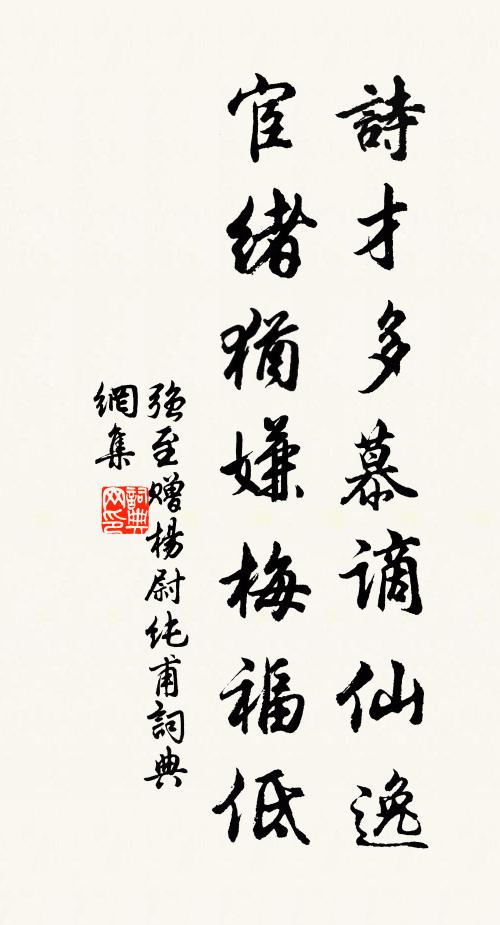 詩才多慕謫仙逸
宦緒猶嫌梅福低
強至贈楊尉純甫詞典
網集
詞典
网印